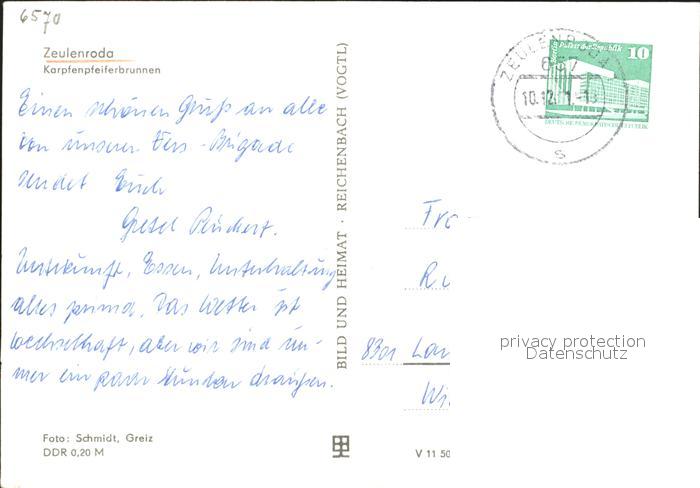 6570
Zeulenroda
Karpfenpfeiferbrunnen
Einen schönen Gruß an alle
von unserer Fers-Brigade
sendet Euch
Gretel Reichert.
Unterkunft, Essen, Unterhaltung
alles prima. Das Wetter ist
wechselhaft, aber wir sind im-
mer ein paar Stunden draußen.
Foto: Schmidt, Greiz
DDR 0,20 M
BILD UND HEIMAT · REICHENBACH (VOGTL)
V 11 50
ZEULENRODA
657
10.12.
S
Berlin Palast der Republik 10
DEUTSCHE DEMOKRATISCHE REPUBLIK
Fra
8301 Lan
privacy protection
Datenschutz